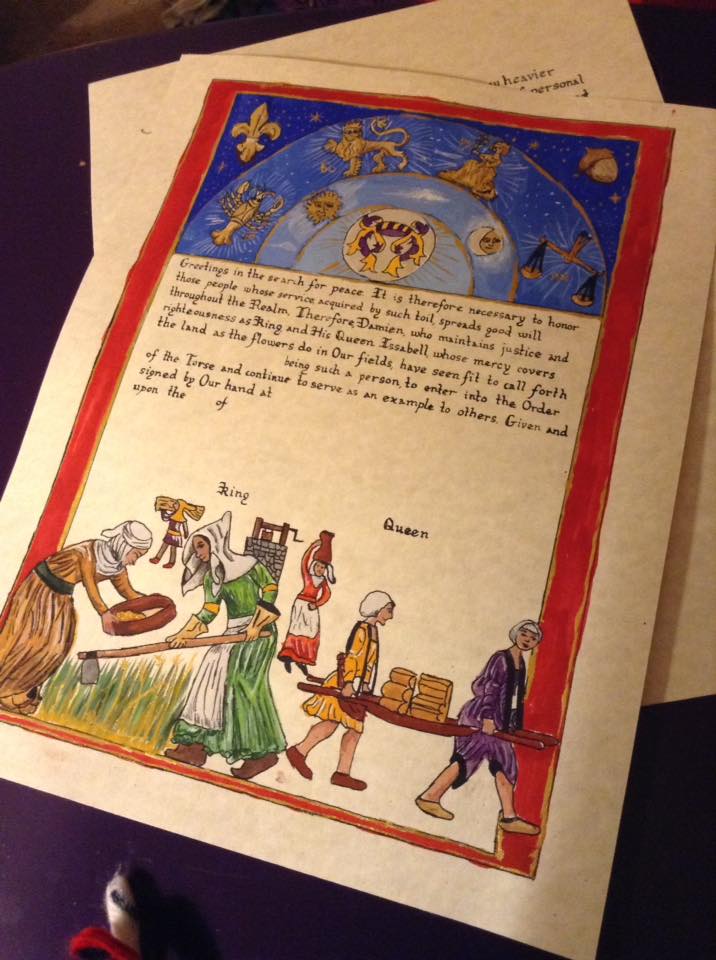 heavier
personal
Greetings in the search for peace. It is therefore necessary to honor
those people whose service, acquired by such toil, spreads good will
throughout the Realm. Therefore, Damien, who maintains justice and
righteousness as King and His Queen, Issabell, whose mercy covers
the land as the flowers do in Our fields, have seen fit to call forth
being such a person, to enter into the Order
of the Torse and continue to serve as an example to others. Given and
signed by Our hand at
upon the of
King
Queen